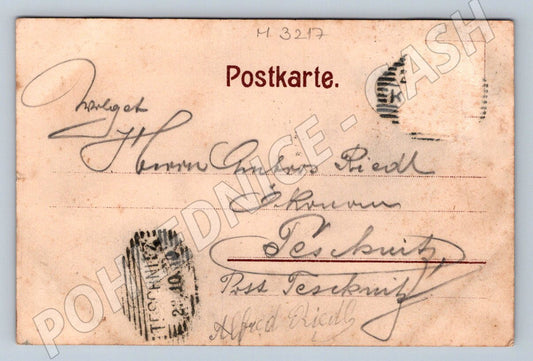 M 3217
Postkarte.
Wolgeb
Herrn Ambros Riedl
Ökonom
Tescknitz,
Post Tescknitz
Alfred Riedl
TESCHNITZ
POHLEDNICE - CASH